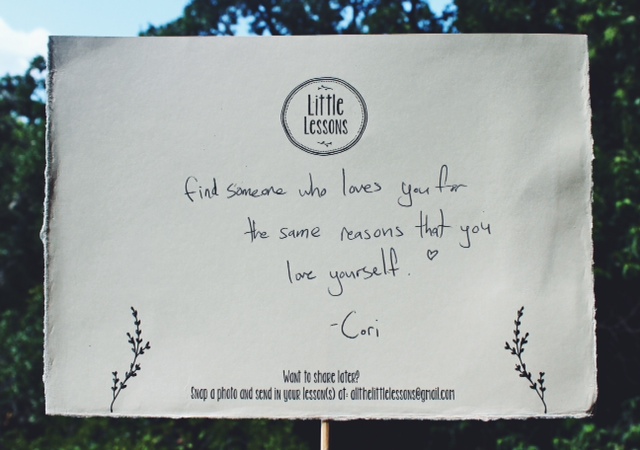 Little
Lessons
find someone who loves you for
the same reasons that you
love yourself. ♡
-Cori
Want to share later?
Snap a photo and send in your lesson(s) at: allthelittlelessons@gmail.com